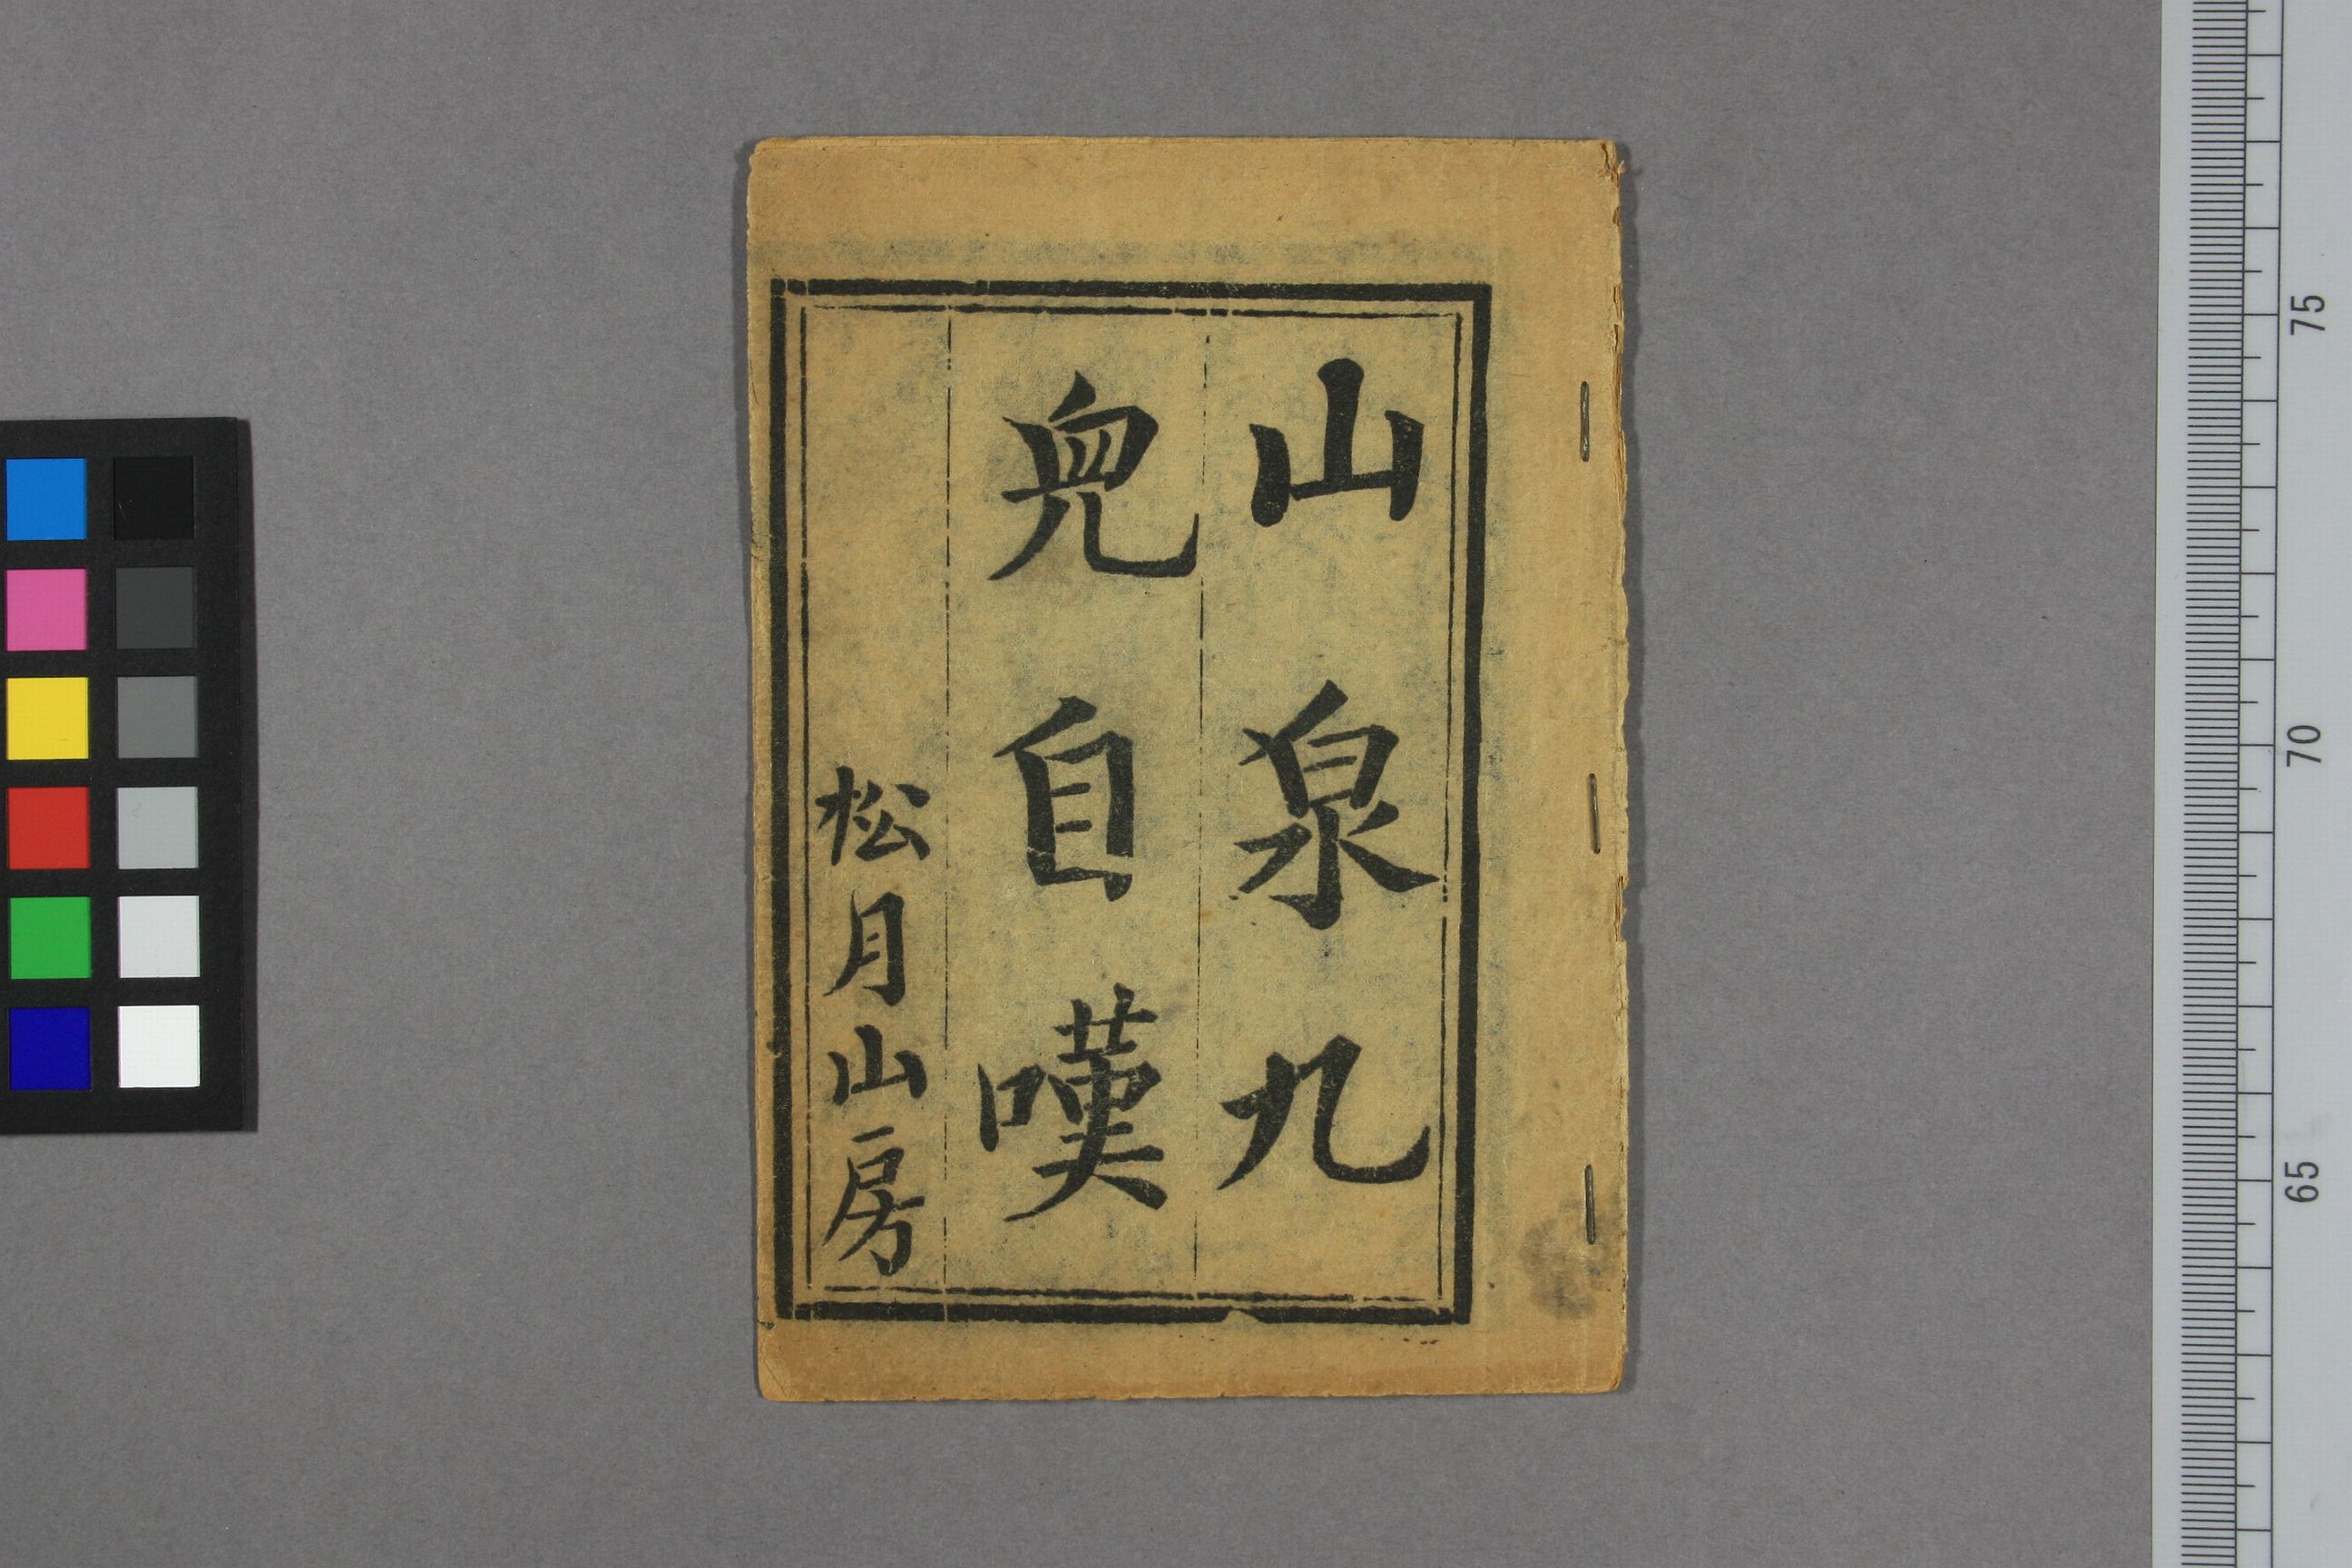 山泉九
兒自嘆
松月山房
75
70
65